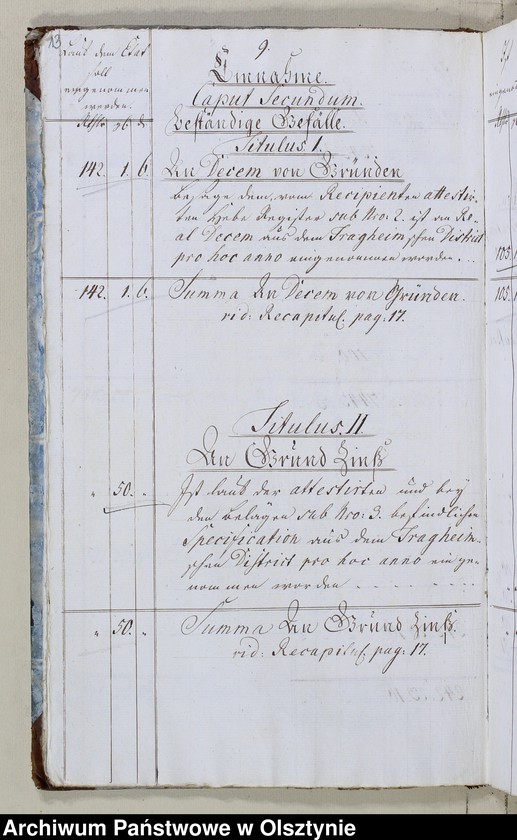 13
9.
Laut dem Etat
soll
eingenommen
werden.
Rthlr gl. d
Einnahme.
Caput Secundum.
Beständige Gefälle.
Titulus I.
142. 1. 6. An Decem von Gründen
besage dem, vom Recipienten attestir-
ten Hebe Register sub No: 2. ist an Re-
al Decem aus dem Tragheimschen District
pro hoc anno eingenommen worden...
142. 1. 6. Summa An Decem von Gründen.
vid: Recapitul. pag: 17.
Titulus. II.
An Grund Zinß
" 50. " Ist laut der attestirten und bey
den Belägen sub No: 3. befindlichen
Specification aus dem Tragheim-
schen District pro hoc anno einge-
nommen worden
" 50. " Summa An Grund Zinß.
vid: Recapitul. pag: 17.
105.
105. 1
Archiwum Państwowe w Olsztynie